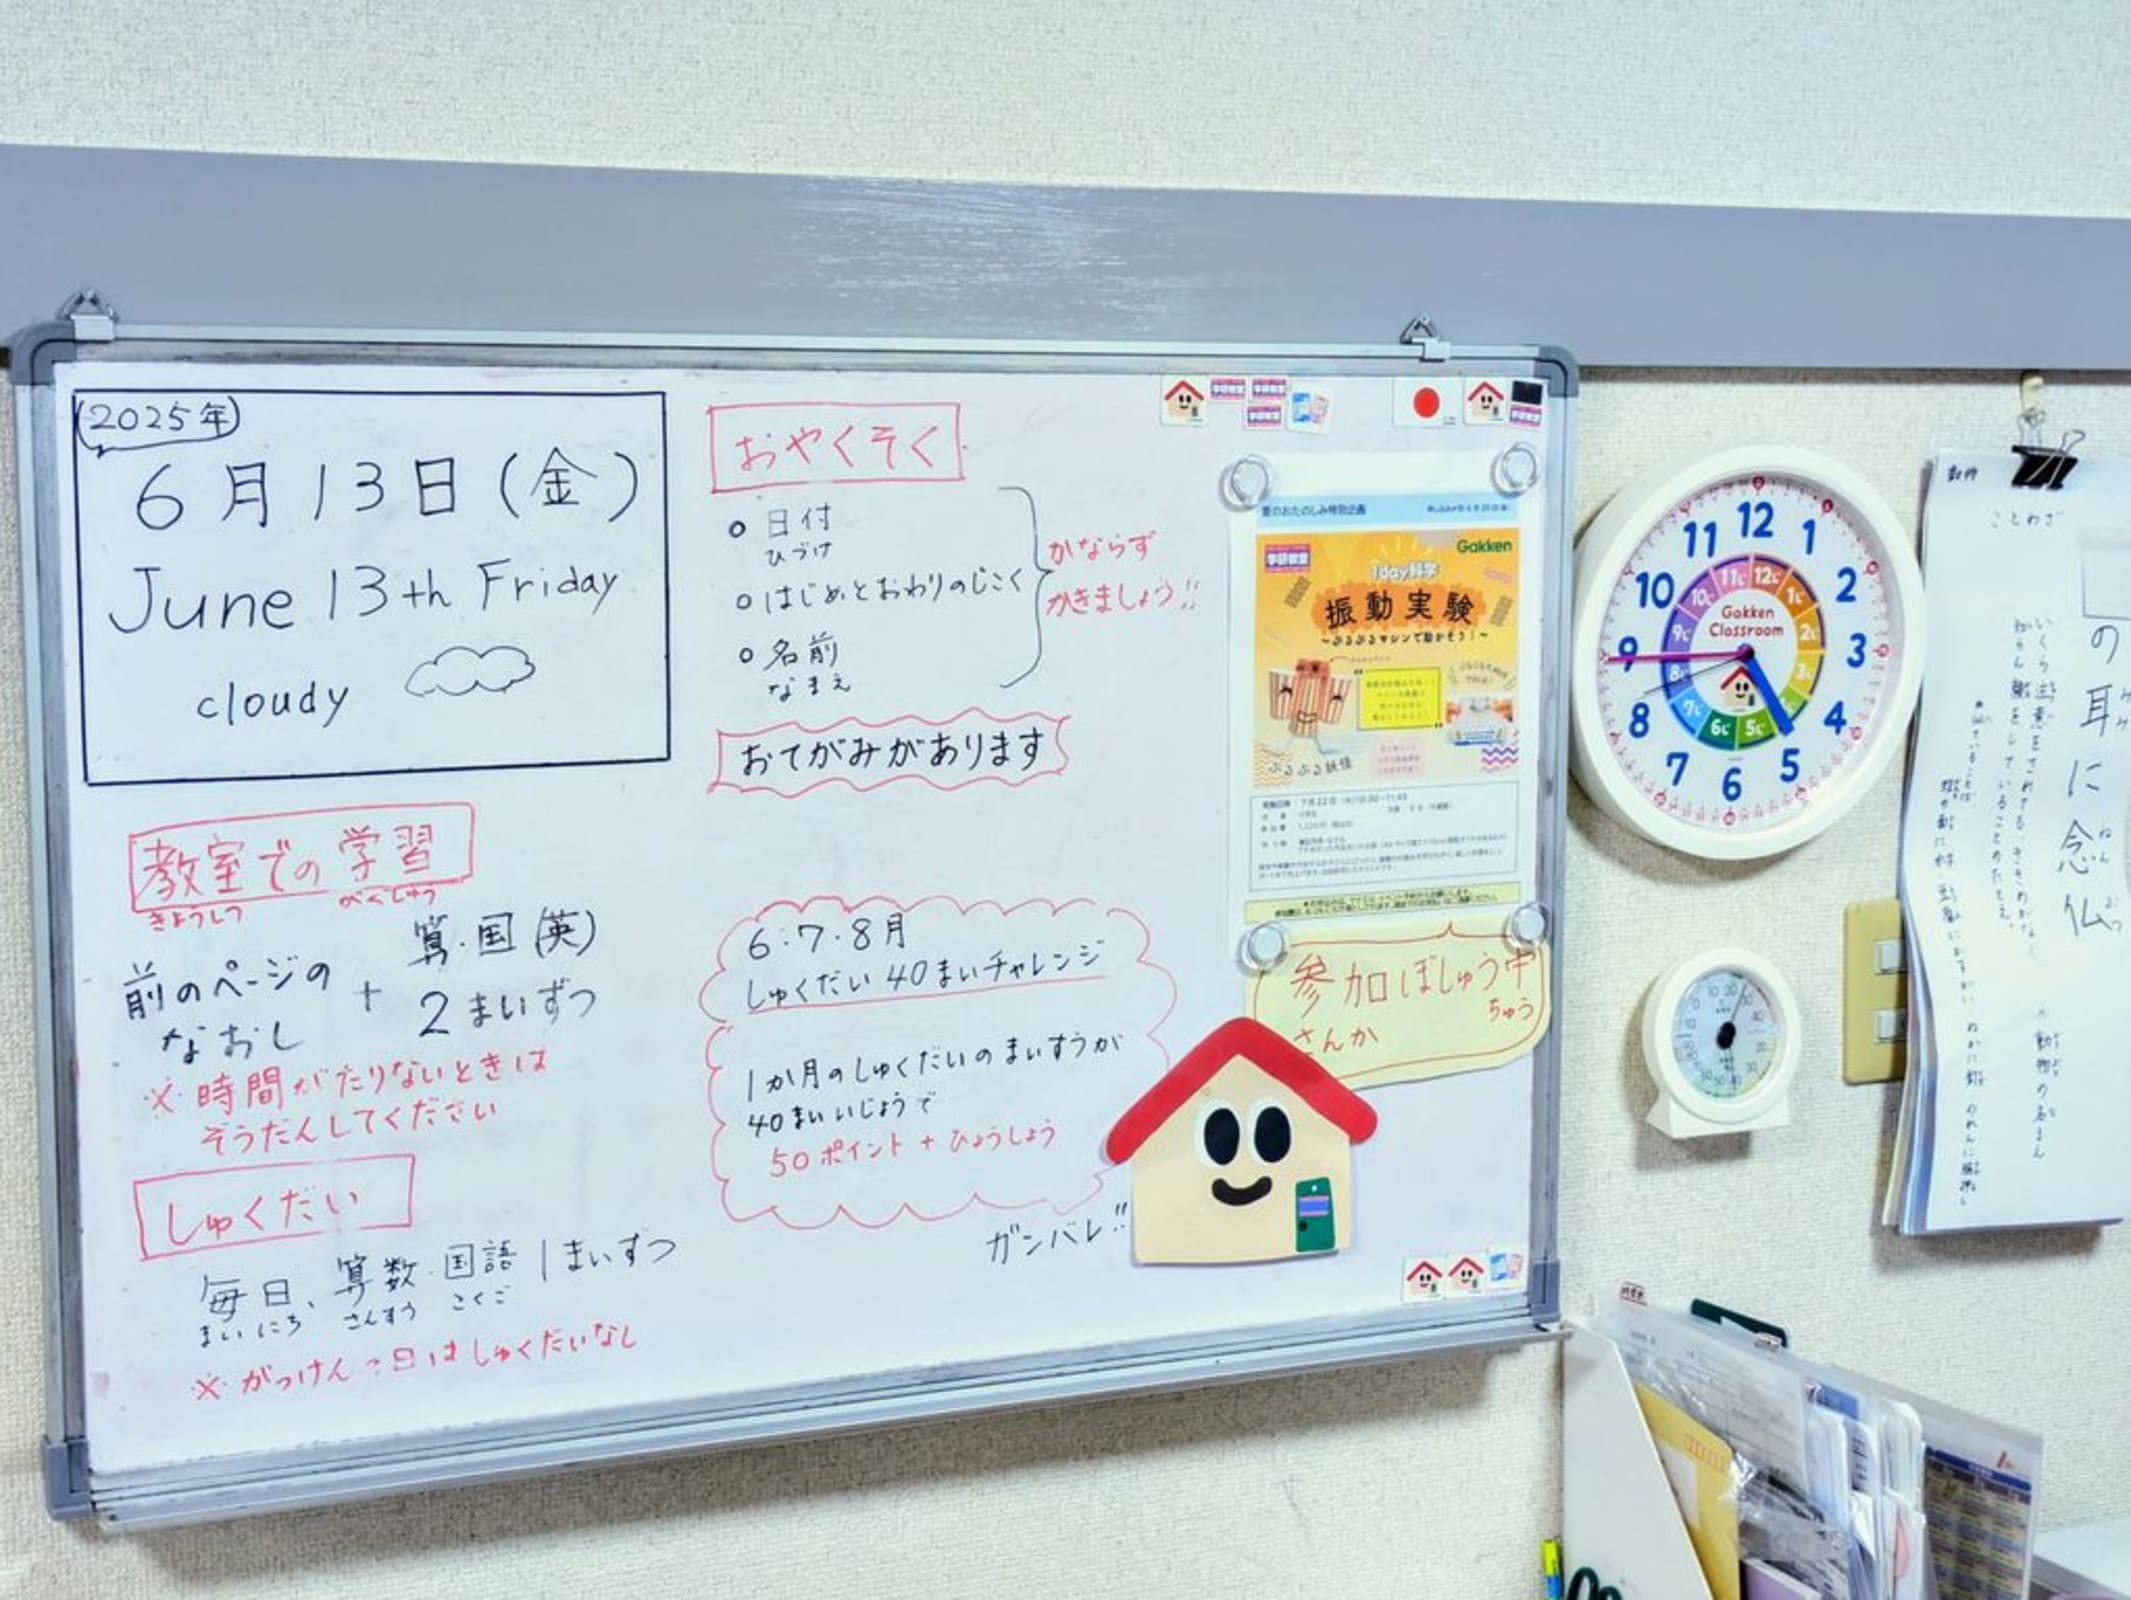 (2025年)
6月13日(金)
June 13th Friday
cloudy
教室での学習
きょうしつ がくしゅう
前のページの
なおし
+
算・国(英)
2まいずつ
※時間がたりないときは
そうだんしてください
しゅくだい
毎日、算数・国語1まいずつ
まいにち さんすう こくご
※がっけんの日はしゅくだいなし
おやくそく
日付
ひづけ
はじめとおわりのじこく
名前
なまえ
かならず
かきましょう!!
おてがみがあります
6・7・8月
しゅくだい40まいチャレンジ
1か月のしゅくだいのまいすうが
40まいいじょうで
50ポイント+ひょうしょう
ガンバレ!!
夏のおたのしみ特別企画
学研教室
Gakken
1day科学
振動実験
~ぶるぶるマシンで動かそう!~
ぶるぶる妖怪
参加ぼしゅう中
さんか
ちゅう
12
1
2
3
4
5
6
7
8
9
10
11
12じ
1じ
2じ
3じ
5じ
6じ
7じ
8じ
9じ
10じ
11じ
Gakken
Classroom
ことわざ
の耳に念仏
ねん
いくら注意をされても、ききめがなく